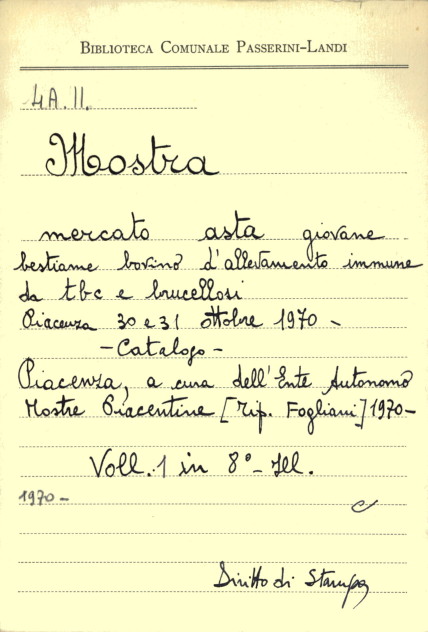 BIBLIOTECA COMUNALE PASSERINI-LANDI
4A.II.
Mostra
mercato asta giovane
bestiame bovino d'allevamento immune
da tbc e brucellosi
Piacenza 30 e 31 ottobre 1970 -
- Catalogo -
Piacenza, a cura dell'Ente Autonomo
Mostre Piacentine [Tip. Fogliani] 1970-
Voll. 1 in 8° - Ill.
1970 -
Diritto di Stampa